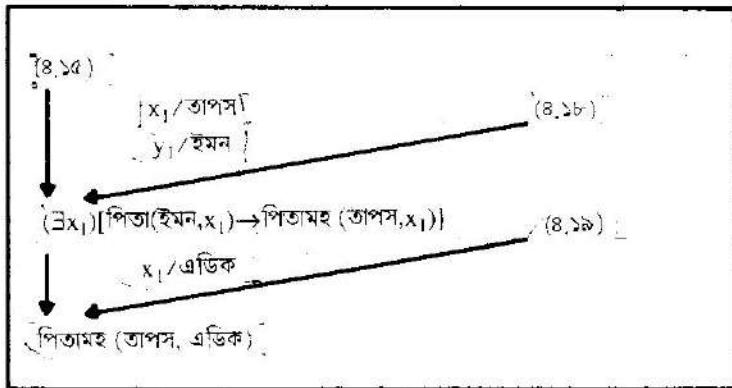 (৪.১৫)
x₁/তাপস
(৪.১৮)
y₁/ইমন
(∃x₁)[পিতা(ইমন,x₁)→পিতামহ (তাপস,x₁)}
(৪.১৯)
x₁/এডিক
পিতামহ (তাপস, এডিক)